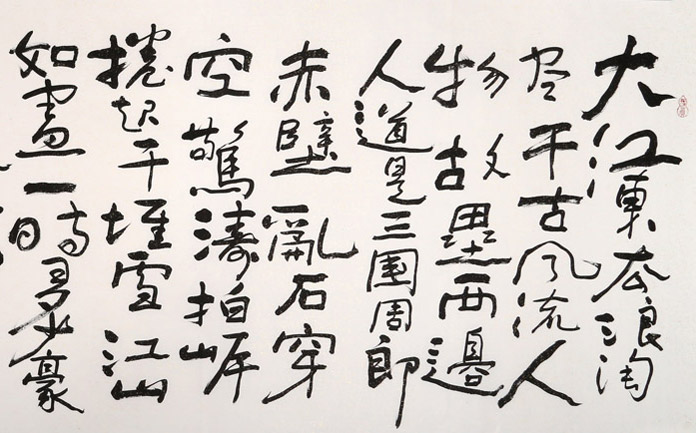 大江東去浪淘
尽千古风流人
物故壘西邊
人道是三國周郎
赤壁亂石穿
空驚濤拍岸
捲起千堆雪江山
如畫一時多少豪